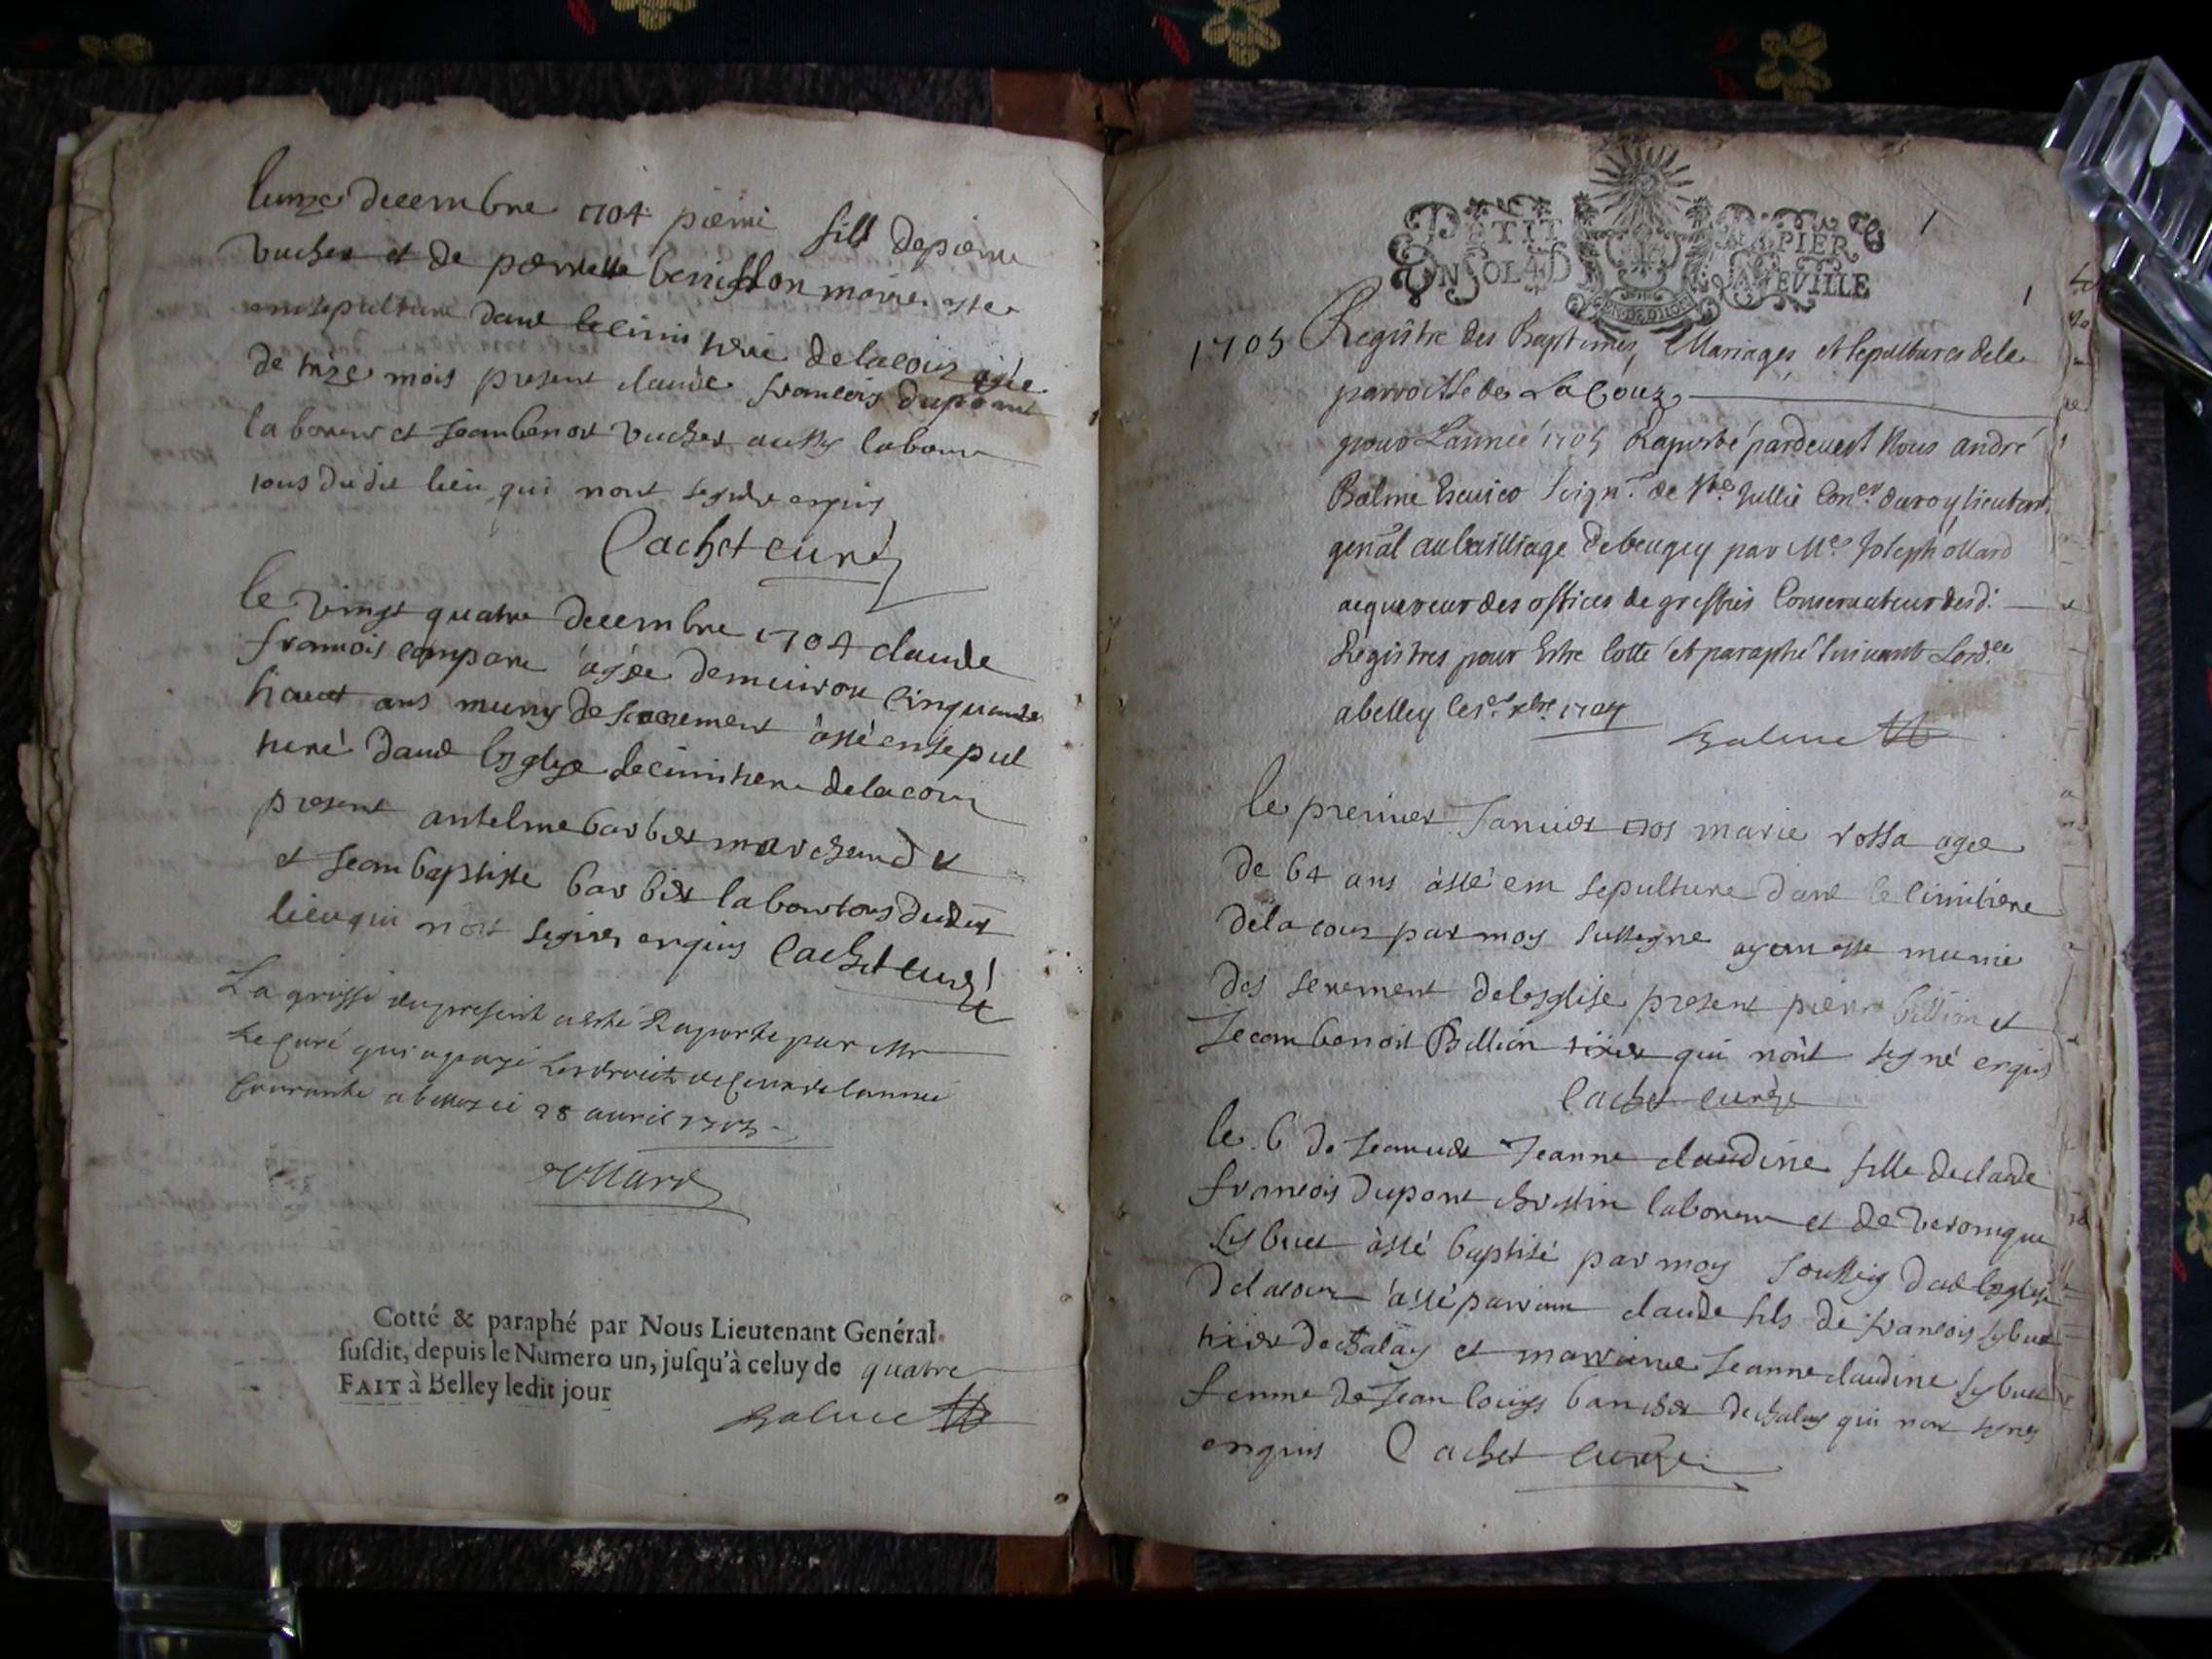 decembre 1704 fils de pierre
vucher et de pernette benisson
en sepulture dans le cimi tiere delacour agée
de treze mois present claude francois dupont
laboreur et Jean benoit vucher aussy labour
tous dudit lieu qui nont requis
Cachet curé
le vingt quatre decembre 1704 claude
francois agée denviron cinquante
ans muny de sacrement àsté ensepul
turé dans cimitiere delacour
present antelme barbier marchand
et Jean baptiste barbier dudit
lieu qui nont signer requis Cachet curé
La grosse du present a esté Raporté par Mr
Le Curé qui a payé Les droits de lannée
Courante a belley ce 28 avril
ollard
Cotté & paraphé par Nous Lieutenant Genéral
susdit, depuis le Numero un, jusqu'à celuy de quatre
FAIT à Belley ledit jour
Balme
PETIT PAPIER
UN SOL 4 D LA FEVILLE
1
1
1705 Registre des Baptemes, Mariages, et sepultures dela
parroisse de La Couz
pour Lannéé 1705 Raporté pardevant Nous andré
Balme Escuier Seignr. de Ste Jullie Coner. du roy lieutent
genāl au bailliage de beugey par Me Joseph ollard
acquereur des offices de greffiers Conservateur desd.
Registres pour Estre Cotté et paraphé suivant Lordce
a belley le xbre 1704
Balme
le premier Janvier 1705 marie rossa agee
de 64 ans àsté em sepulture dans le cimitiere
dela cour par moy sussigne ayant este munie
des serement de lesglise present pierre billion et
Jean benoit Billion tixier qui nònt signé requis
Cachet curé
le 6 de Jeanvier Jeanne claudine fille de claude
francois dupont laboreur et de veronique
àsté baptisé par moy soussig
delacour àsté parrain claude fils de francois
tixier de chalay et marraine Jeanne claudine
femme de Jean louys de chalay qui nont signer
requis Cachet curé